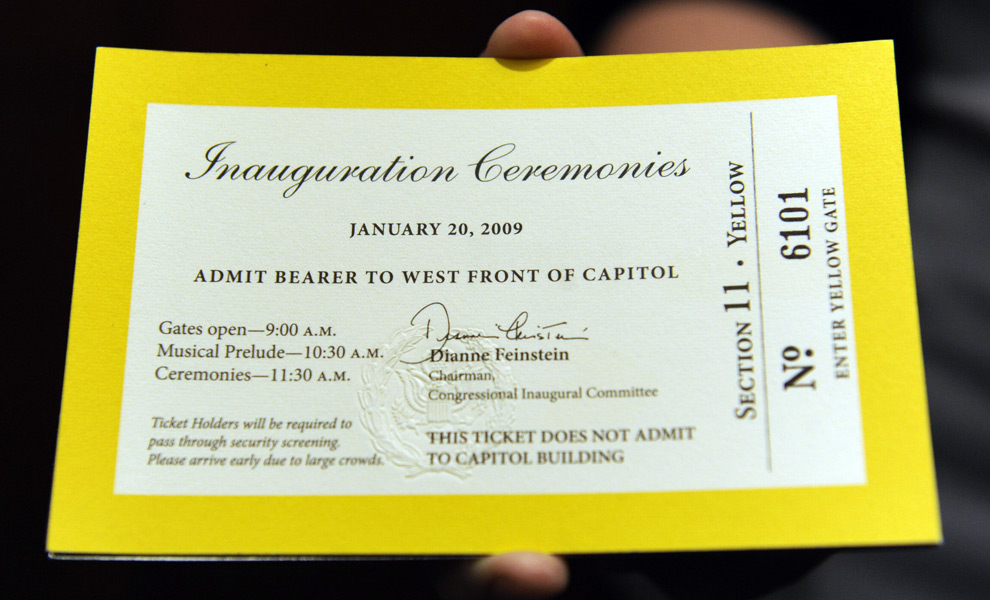 Inauguration Ceremonies
JANUARY 20, 2009
ADMIT BEARER TO WEST FRONT OF CAPITOL
Gates open—9:00 A.M.
Musical Prelude—10:30 A.M.
Ceremonies—11:30 A.M.
Ticket Holders will be required to
pass through security screening.
Please arrive early due to large crowds.
Dianne Feinstein
Dianne Feinstein
Chairman,
Congressional Inaugural Committee
THIS TICKET DOES NOT ADMIT
TO CAPITOL BUILDING
SECTION 11 · YELLOW
Nº 6101
ENTER YELLOW GATE